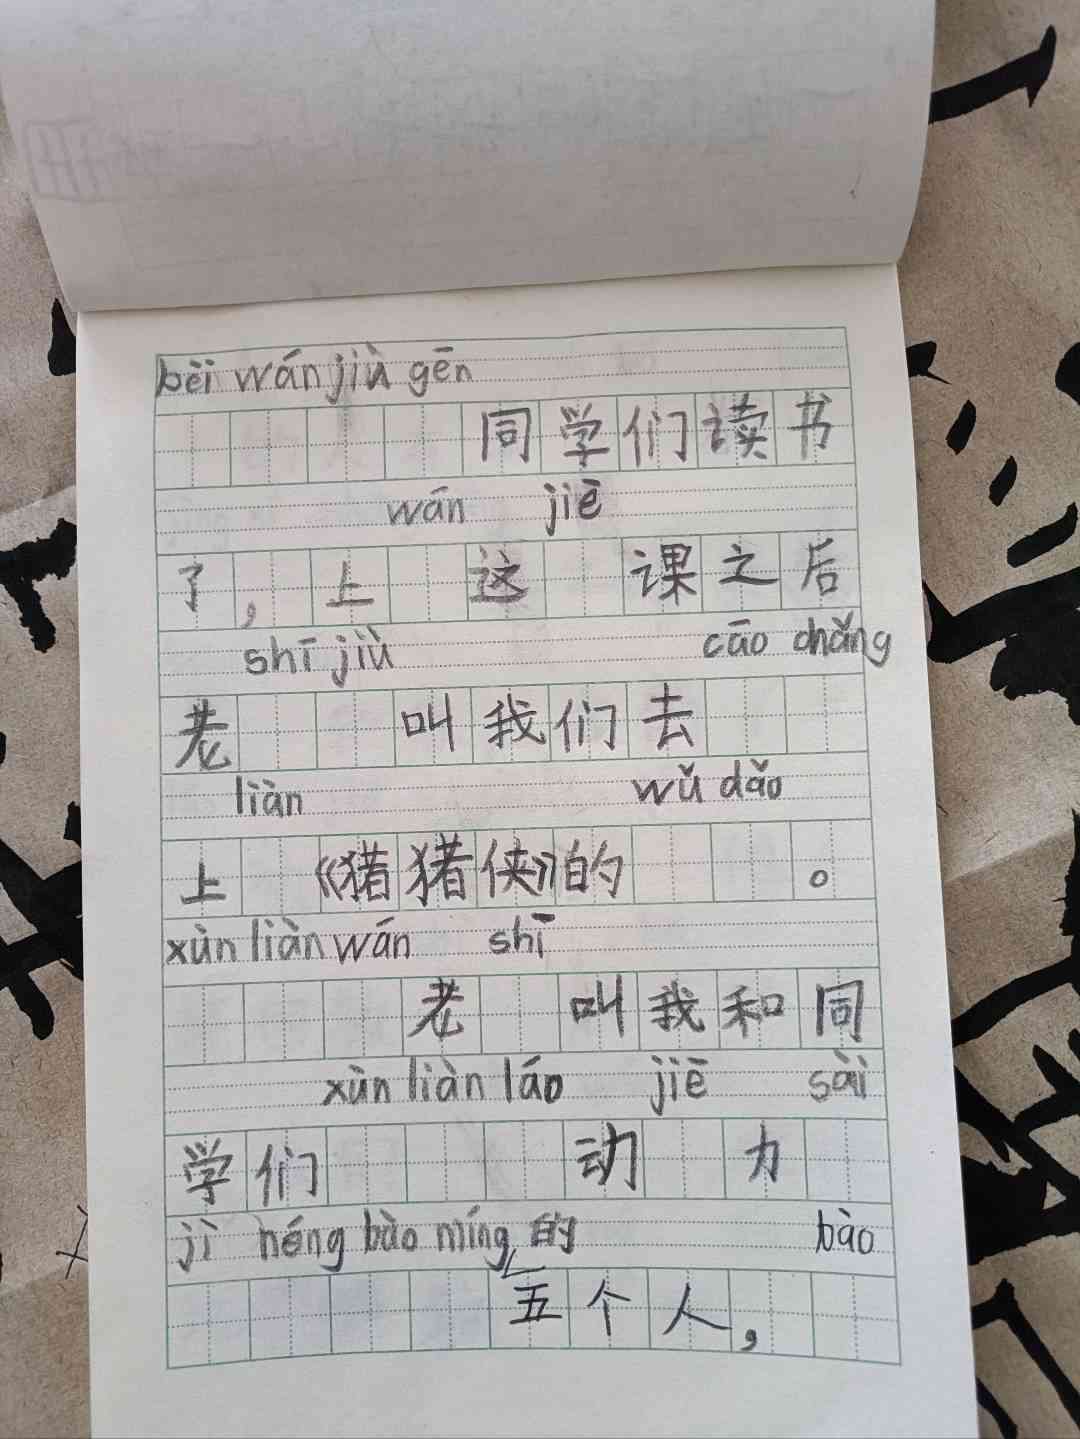 bèi wán jiù gēn
同学们读书
wán jiē
了，上这课之后
shī jiù cāo chǎng
老叫我们去
liàn wǔ dǎo
上《猪猪侠》的。
xùn liàn wán shī
老叫我和同
xùn liàn láo jiē sài
学们动力
jì néng bào míng 的 bào
五个人，